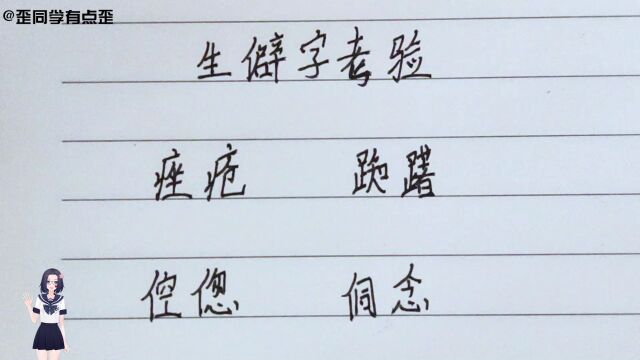 @歪同学有点歪
生僻字考验
痤疮 踟躇
倥偬 侗念